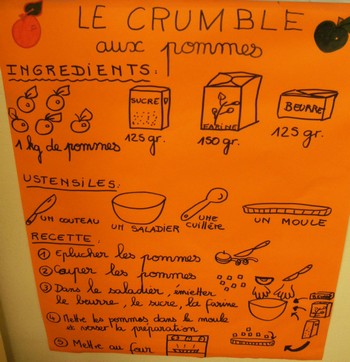 LE CRUMBLE
aux pommes
INGREDIENTS:
SUCRE
FARINE
BEURRE
1 kg de pommes
125 gr.
150 gr.
125 gr.
USTENSILES:
UN COUTEAU
UN SALADIER
UNE CUILLÈRE
UN MOULE
RECETTE:
① Eplucher les pommes
② Couper les pommes
③ Dans le saladier, émietter
le beurre, le sucre, la farine
④ Mettre les pommes dans le moule
et verser la préparation
⑤ Mettre au four